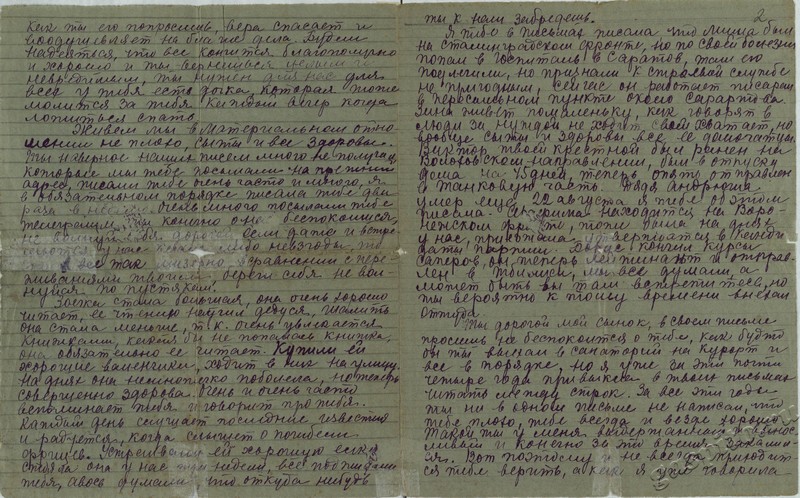 Как ты его попросишь, вера спасает и
воодушевляет на благие дела. Будем
надеяться, что все кончится благополучно
и хорошо и ты вернешься целым и
невредимым, ты нужен для нас, для
всех у тебя есть дочка, которая тоже
молится за тебя каждый вечер когда
ложиться спать.
Живем мы в материальном отно
шении не плохо, сыты и все здоровы.
Ты наверное наших писем много не получил,
которые мы тебе посылали на прежний
адрес, писали тебе очень часто и много, я
в обязательном порядке писала тебе два
раза в неделю. Очень много посылали тебе
телеграмм, мы конечно очень беспокоимся,
не волнуй себя дорогой если даже и встре
чаются у нас какие либо невзгоды, то
все так в сравнении с пере
живаниями твоими, береги себя не вол
нуйся по пустякам.
стала большая, она очень хорошо
читает, ее чтению научил дедуся. Шалить
она стала меньше, т.к. очень увлекается
книжками, какая бы не попалась книжка,
она обязательно ее читает. Купили ей
хорошие валенки, ходит в них на улицу.
На днях она немножко поболела, но теперь
совершенно здорова. Очень и очень часто
вспоминает тебя и говорит про тебя.
Каждый день слушает последние известия
и радуется, когда слышит о погибели
фрицев. Устраивали ей хорошую елку
стояла она у нас две недели, все поджидали
тебя, авось думали что откуда нибудь
2
ты к нам забредешь.
Я тебе в письмах писала что Миша был
на сталинградском фронте, но по своей болезни
попал в госпиталь в Саратов, там его
подлечили, но признали к строевой службе
не пригодным, сейчас он работает писарем
в пересыльном пункте около Саратова.
Зина живет помаленьку, как говорят в
люди за нуждой не ходит, своей хватает, но
вообще сыты и здоровы все ее домочадцы.
Виктор твоей крестной был ранен на
Волховском направлении, был в отпуску
дома на 45 дней, теперь опять отправлен
в танковую часть. Дядя Андрюша
умер еще 22 августа я тебе об этом
писала. находится на Воро-
нежском фронте, тоже была на днях
у нас, приезжала.
кончил курсы
саперов, он теперь лейтенант и отправ-
лен в Тбилиси, мы все думали а
может быть вы там встретитесь, но
ты вероятно к тому времени выехал
оттуда.
Ты дорогой мой сынок, в своем письме
просишь не беспокоится о тебе, как будто
бы ты выехал в санаторий на курорт и
все в порядке, но я уже за эти почти
четыре года привыкла в твоих письмах
читать между строк. За все эти годы
ты ни в одном письме не написал, что
тебе плохо, тебе всегда и везде хорошо.
Такой ты у меня
и конечно за это время
ся. Вот поэтому и не всегда приходит
ся тебе верить, а как я уже говорила